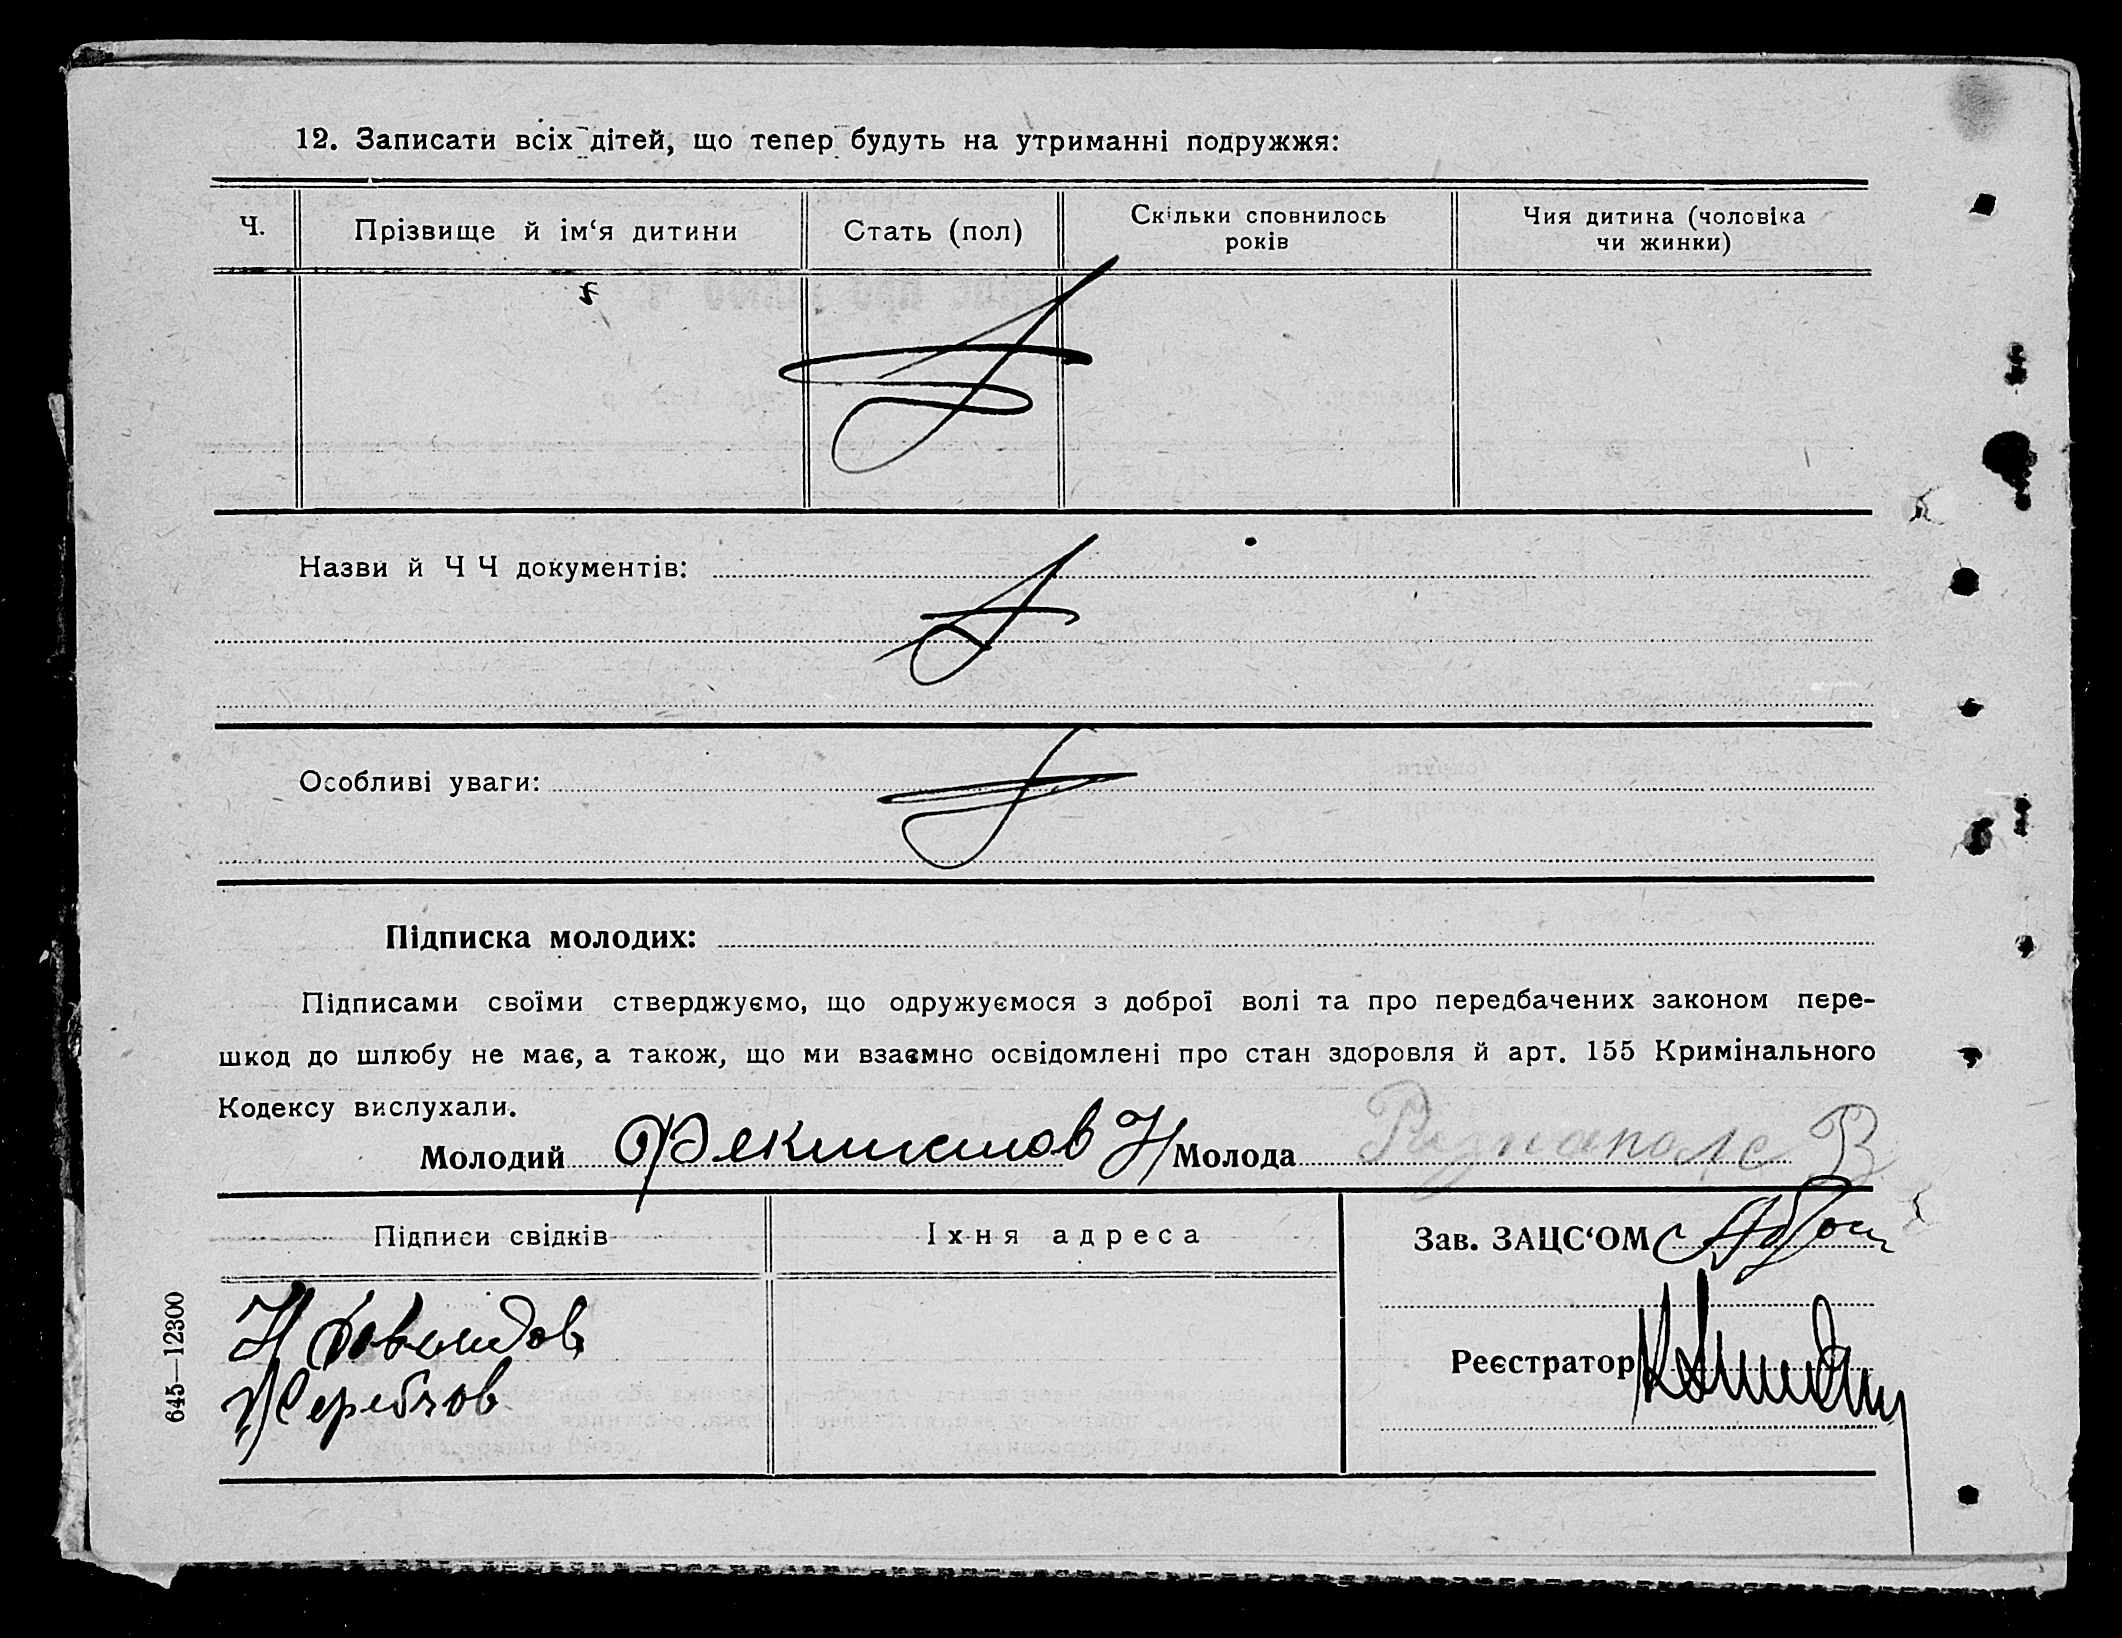 12. Записати всіх дітей, що тепер будуть на утриманні подружжя:
Ч.
Прізвище й ім‘я дитини
Стать (пол)
Скільки сповнилось років
Чия дитина (чоловіка чи жинки)
Назви й Ч Ч документів:
Особливі уваги:
Підписка молодих:
Підписами своїми стверджуємо, що одружуємося з доброї волі та про передбачених законом пере-
шкод до шлюбу не має, а також, що ми взаємно освідомлені про стан здоровля й арт. 155 Кримінального
Кодексу вислухали.
Молодий
Молода
Підписи свідків
Їхня адреса
Зав. ЗАЦС‘ОМ
Реєстратор
Жеребчов
645—12300